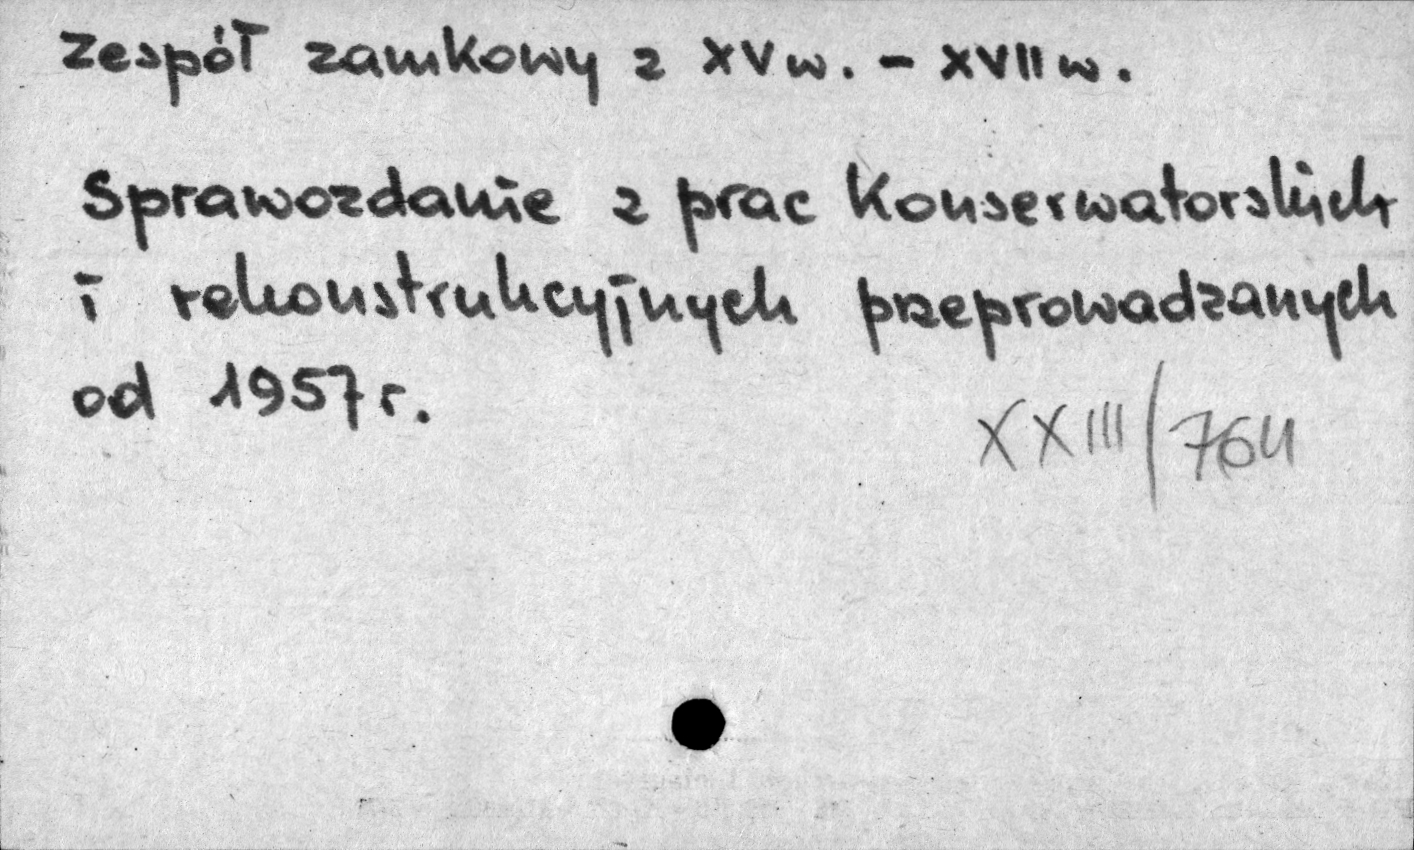 Zespół zamkowy z XV w. - XVII w.
Sprawozdanie z prac Konserwatorskich
i rekonstrukcyjnych przeprowadzanych
od 1957 r.
XXIII/764